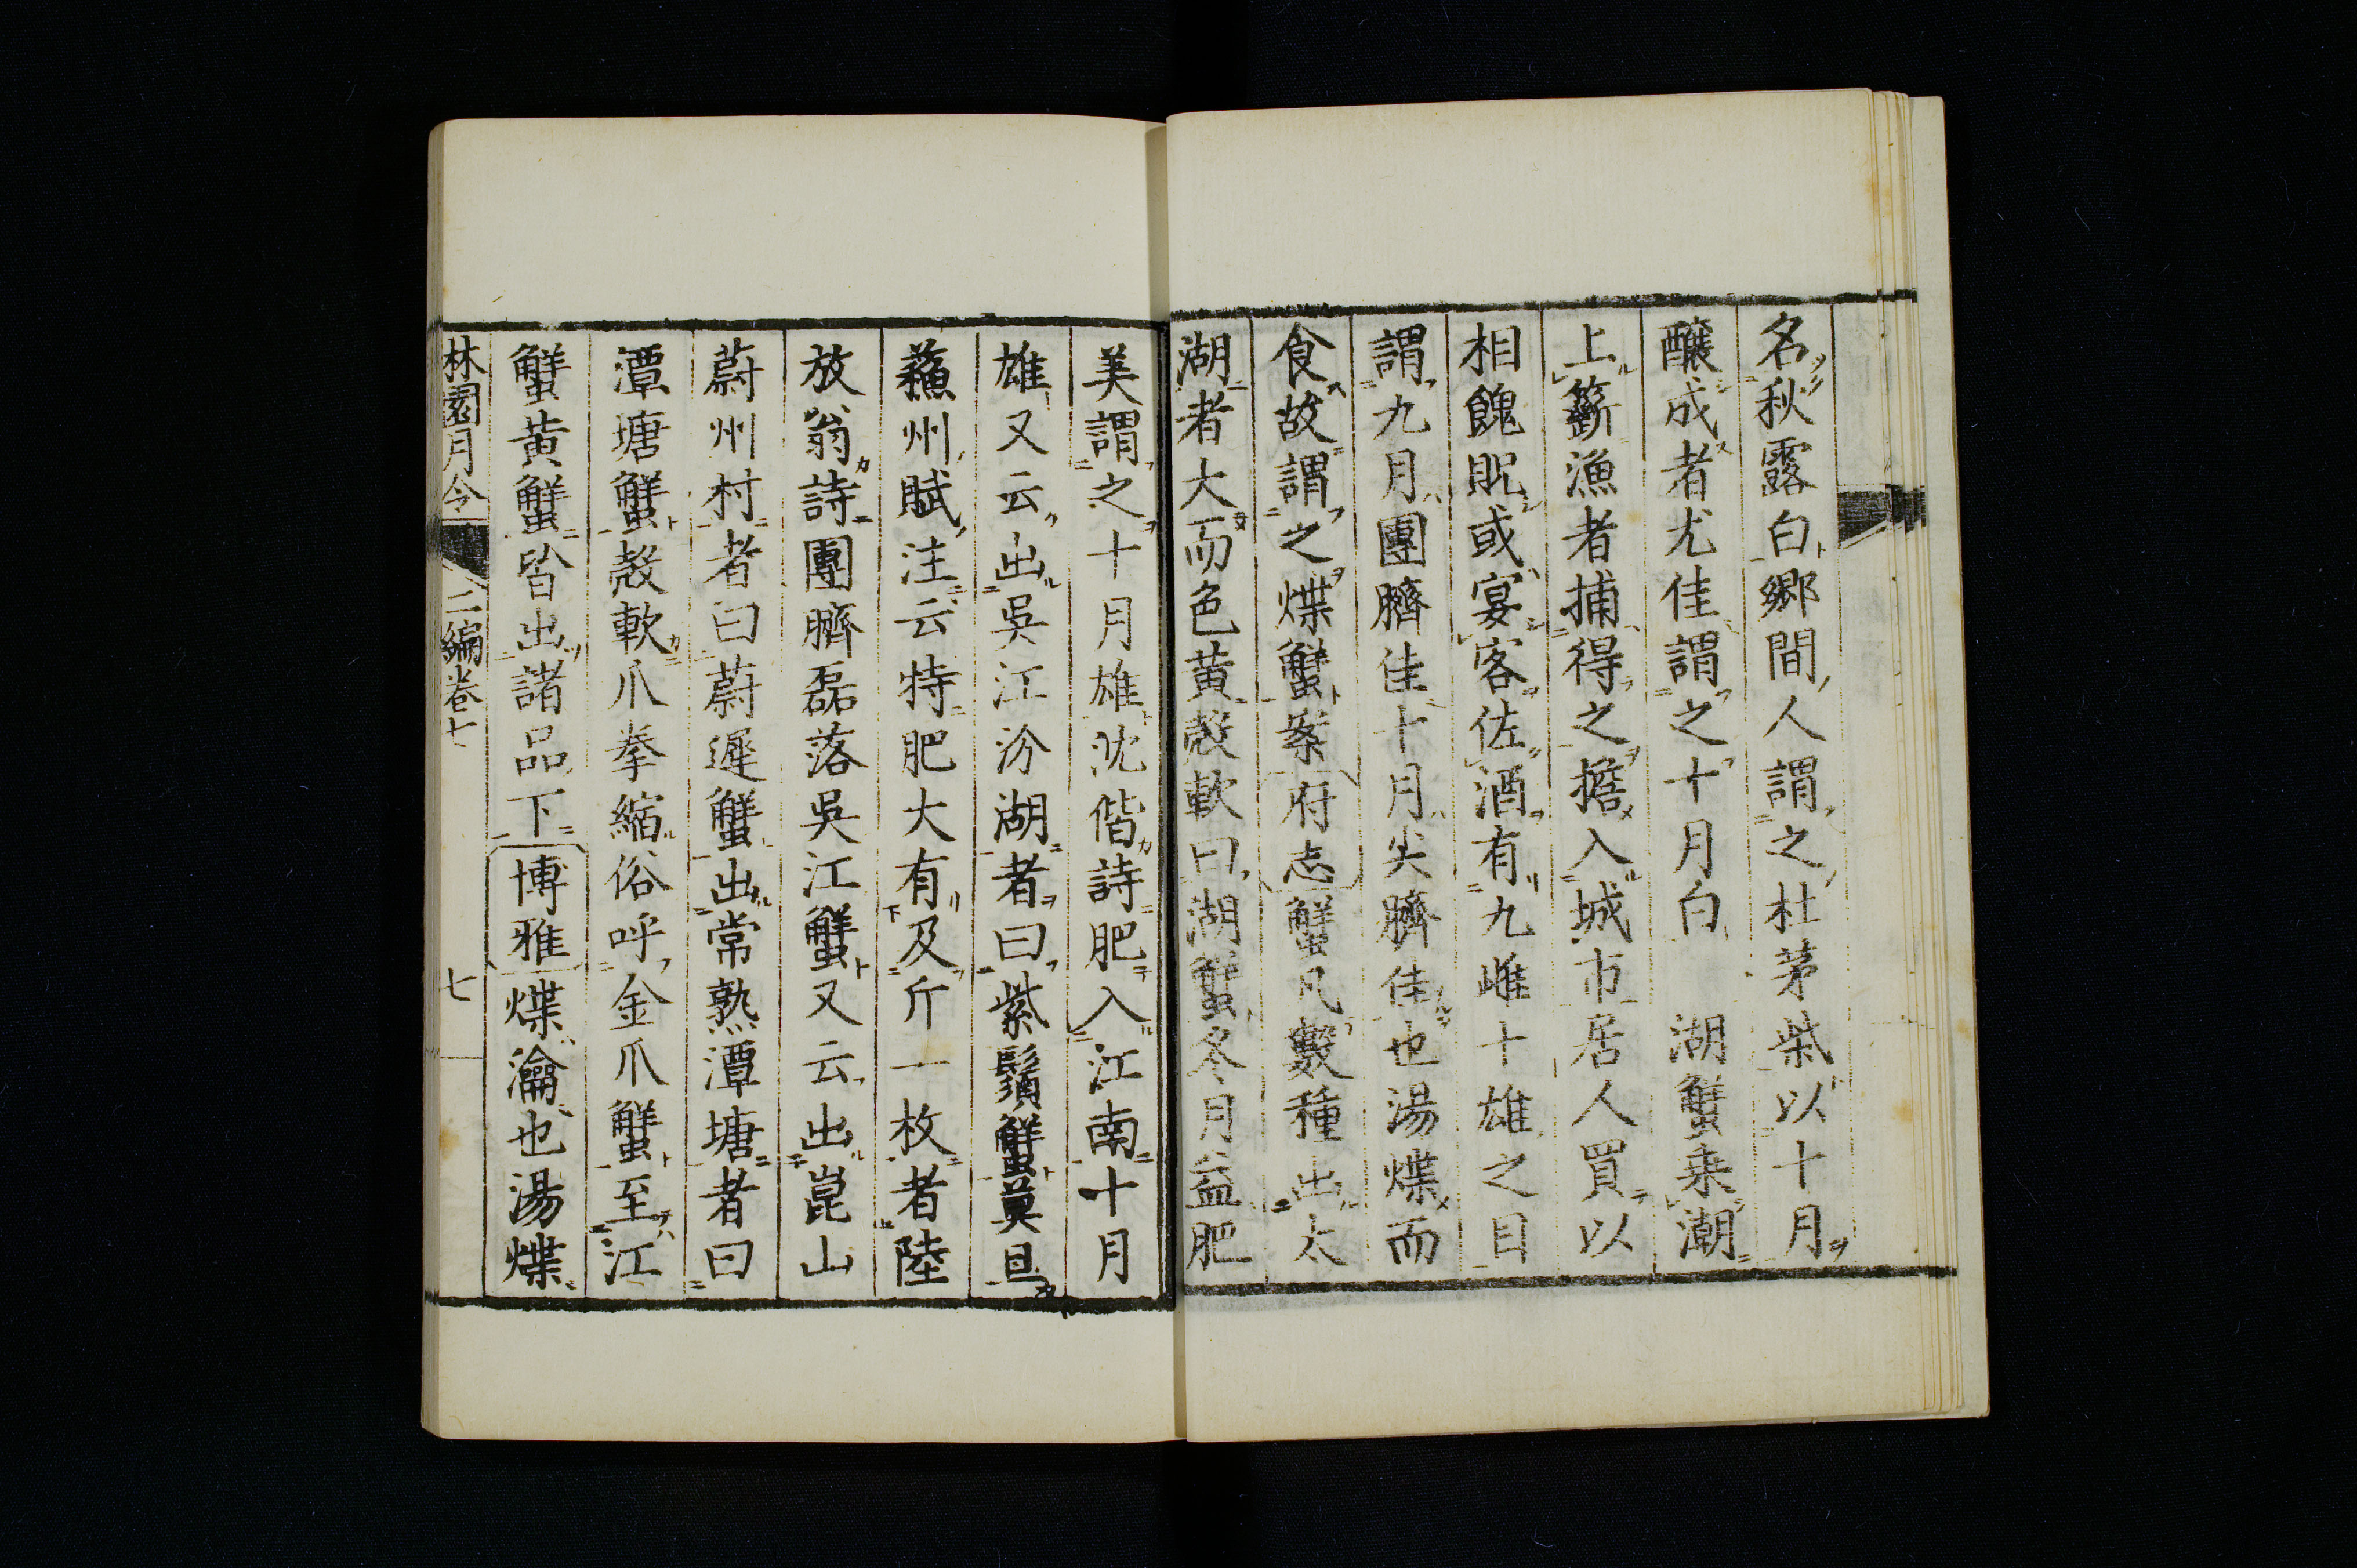 名秋露白鄉間人謂之杜茅柴以十月
釀成者尤佳謂之十月白　湖蟹乗潮
上籪漁者捕得之擔入城市居人買以
相餽貺或宴客佐酒有九雌十雄之目
謂九月團臍佳十月尖臍佳也湯煠而
食故謂之煠蟹案府志蟹凡數種出太
湖者大而色黄殼軟曰湖蟹冬月益肥
美謂之十月雄沈偕詩肥入江南十月
雄又云出吳江汾湖者曰紫鬚蟹莫旦
蘓州賦注云特肥大有及斤一枚者陸
放翁詩團臍磊落吳江蟹又云出崑山
蔚州村者曰蔚遲蟹出常熟潭塘者曰
潭塘蟹殼軟爪拳縮俗呼金爪蟹至江
蟹黄蟹皆出諸品下博雅煠瀹也湯煠
林園月令　二編卷七　七